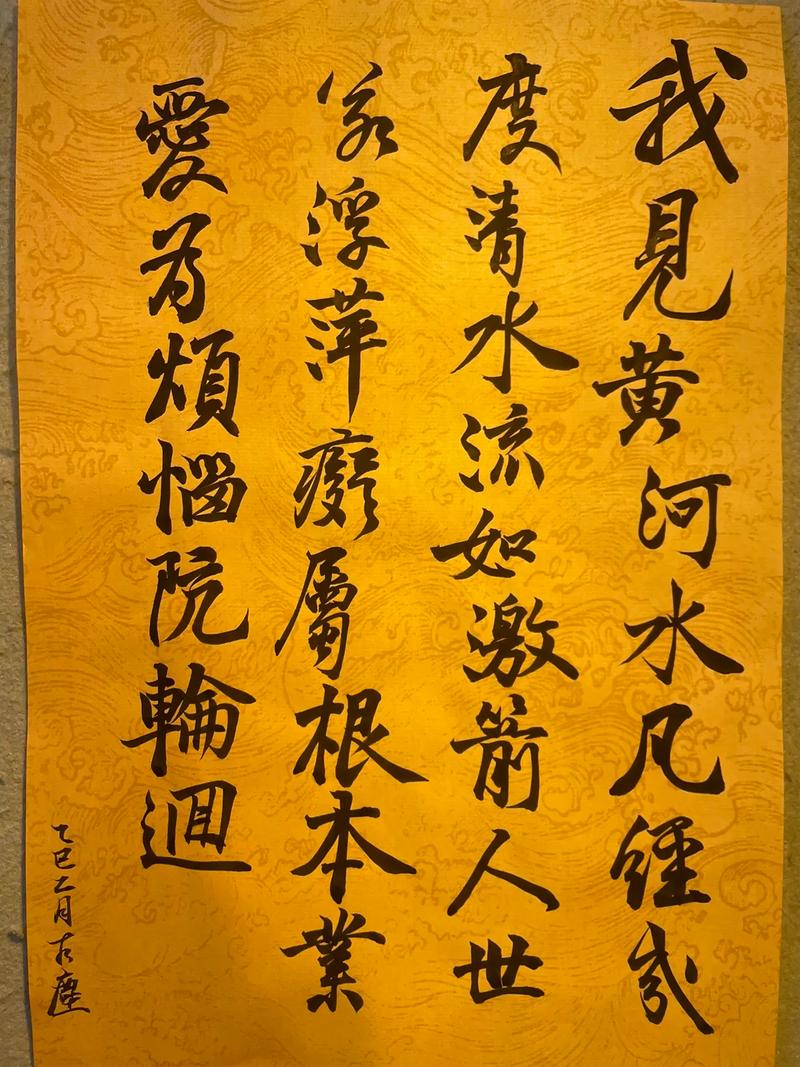 我見黄河水凡經幾
度清水流如激箭人世
若浮萍癡屬根本業
愛為煩惱阬輪迴
乙巳二月古塵